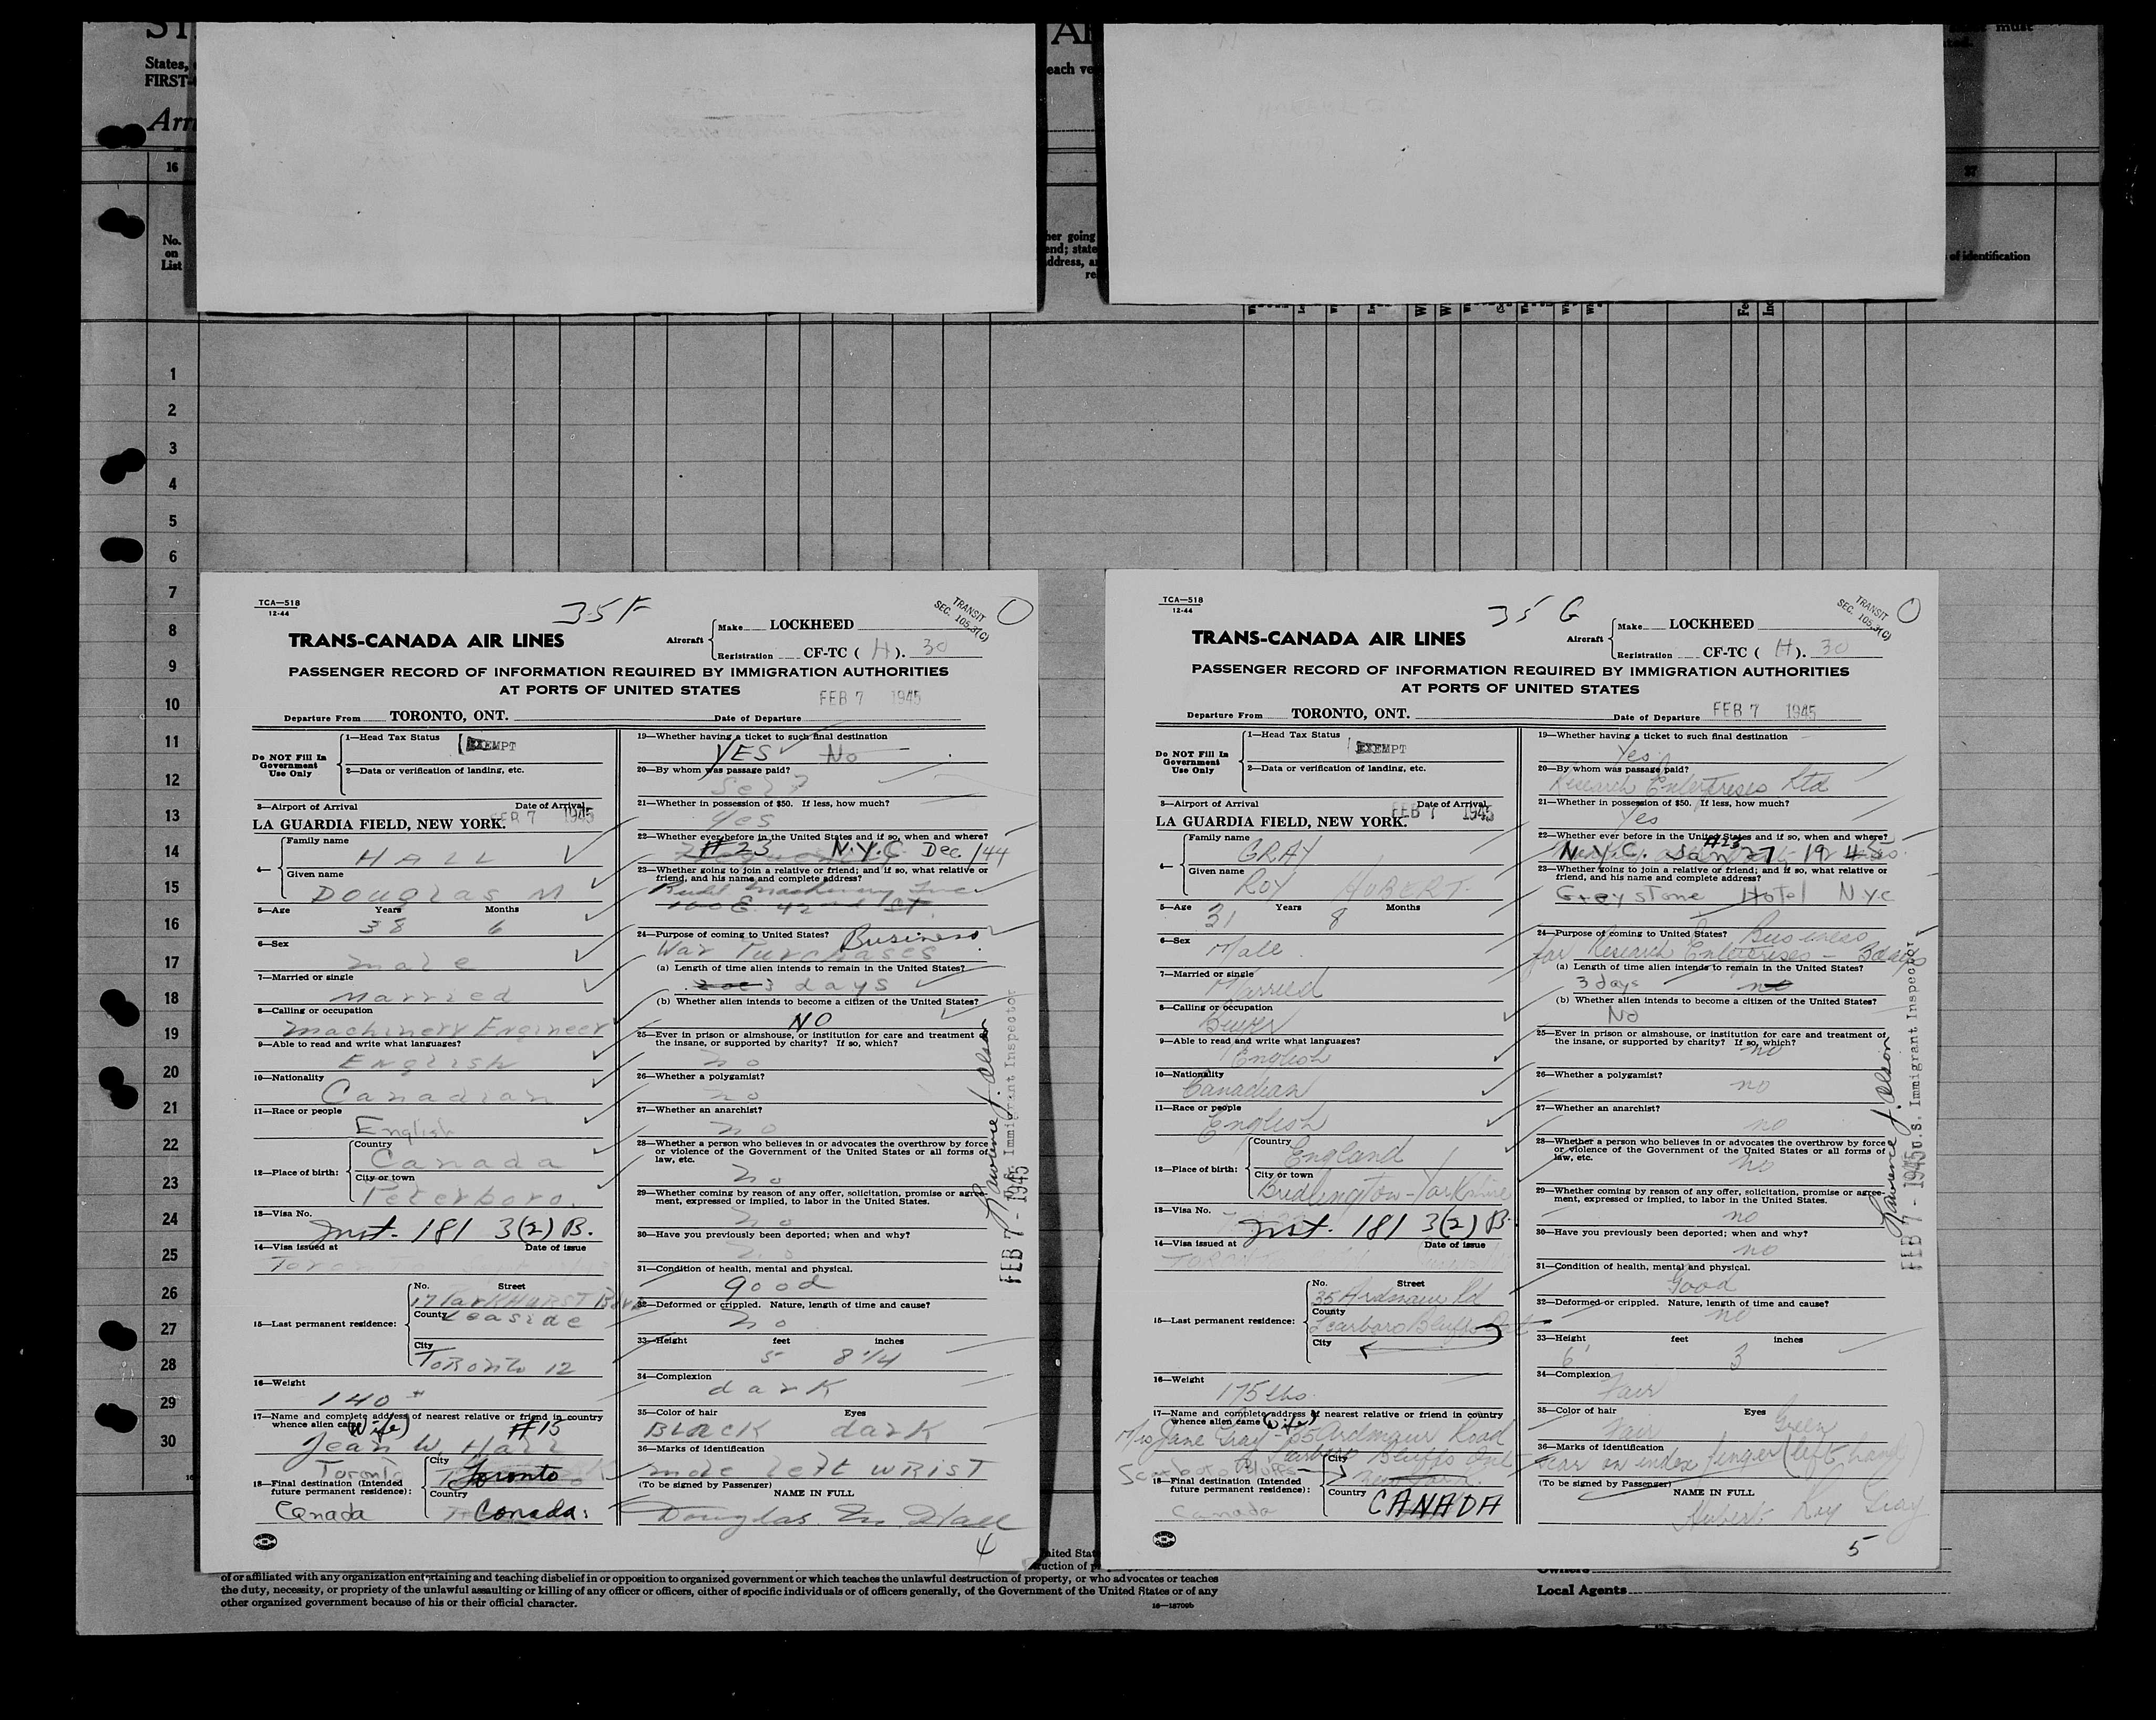 States,
FIRST-
Arri
each ve
must
16
27
No.
on
List
her going
end; state
address, a
re
of identification
1
2
3
4
5
6
7
8
9
10
11
12
13
14
15
16
17
18
19
20
21
22
23
24
25
26
27
28
29
30
TCA—518
12-44
35F
TRANSIT
SEC. 105.3(C)
TRANS-CANADA AIR LINES
Aircraft
Make LOCKHEED
Registration CF-TC ( H ). 30
PASSENGER RECORD OF INFORMATION REQUIRED BY IMMIGRATION AUTHORITIES
AT PORTS OF UNITED STATES
FEB 7 1945
Departure From TORONTO, ONT. Date of Departure
Do NOT Fill In
Government
Use Only
1—Head Tax Status EXEMPT
2—Data or verification of landing, etc.
3—Airport of Arrival Date of Arrival
LA GUARDIA FIELD, NEW YORK. FEB 7 1945
4—
Family name
HALL
Given name
Douglas M
5—Age Years Months
38 6
6—Sex
male
7—Married or single
married
8—Calling or occupation
Machinery Engineer
9—Able to read and write what languages?
English
10—Nationality
Canadian
11—Race or people
English
12—Place of birth:
Country
Canada
City or town
Peterboro.
13—Visa No.
Inst. 181 3(2) B.
14—Visa issued at Date of issue
Toronto
15—Last permanent residence:
No. Street
17 ParkHURST
County Leaside
City
Toronto 12
16—Weight
140
17—Name and complete address of nearest relative or friend in country
whence alien came (wife) #15
Jean W. Hall
Toronto
18—Final destination (Intended
future permanent residence):
City
Toronto
Country
Canada
Canada
19—Whether having a ticket to such final destination
YES No
20—By whom was passage paid?
Self
21—Whether in possession of $50. If less, how much?
Yes
22—Whether ever before in the United States and if so, when and where?
#23 N.Y.C Dec. /44
23—Whether going to join a relative or friend; and if so, what relative or
friend, and his name and complete address?
Machinery Inc
E. 42nd St.
24—Purpose of coming to United States? Business
War Purchases
(a) Length of time alien intends to remain in the United States?
3 days
(b) Whether alien intends to become a citizen of the United States?
NO
25—Ever in prison or almshouse, or institution for care and treatment of
the insane, or supported by charity? If so, which?
no
26—Whether a polygamist?
no
27—Whether an anarchist?
no
28—Whether a person who believes in or advocates the overthrow by force
or violence of the Government of the United States or all forms of
law, etc.
no
29—Whether coming by reason of any offer, solicitation, promise or agree-
ment, expressed or implied, to labor in the United States.
no
30—Have you previously been deported; when and why?
no
31—Condition of health, mental and physical.
good
32—Deformed or crippled. Nature, length of time and cause?
no
33—Height feet inches
5 8 1/4
34—Complexion
dark
35—Color of hair Eyes
BLACK dark
36—Marks of identification
mole left WRIST
(To be signed by Passenger)
NAME IN FULL
Douglas M Hall
4
Lawrence J. Olson
FEB 7 - 1945 U.S. Immigrant Inspector
TCA—518
12-44
35 G
TRANSIT
SEC. 105.3(C)
TRANS-CANADA AIR LINES
Aircraft
Make LOCKHEED
Registration CF-TC ( H ). 30
PASSENGER RECORD OF INFORMATION REQUIRED BY IMMIGRATION AUTHORITIES
AT PORTS OF UNITED STATES
Departure From TORONTO, ONT. Date of Departure FEB 7 1945
Do NOT Fill In
Government
Use Only
1—Head Tax Status EXEMPT
2—Data or verification of landing, etc.
3—Airport of Arrival Date of Arrival
LA GUARDIA FIELD, NEW YORK. FEB 7 1945
4—
Family name
GRAY
Given name
ROY HUBERT
5—Age Years Months
31 8
6—Sex
Male
7—Married or single
Married
8—Calling or occupation
Buyer
9—Able to read and write what languages?
English
10—Nationality
Canadian
11—Race or people
English
12—Place of birth:
Country
England
City or town
Bridlington - Yorkshire
13—Visa No.
Inst. 181 3(2) B.
14—Visa issued at Date of issue
TORONTO
15—Last permanent residence:
No. Street
35 Ardmaur Rd
County
Scarboro Bluffs Ont
City
16—Weight
175 lbs.
17—Name and complete address of nearest relative or friend in country
whence alien came (Wife)
Mrs Jane Gray - 35 Ardmaur Road
Scarboro Bluffs Ont
Scarboro Bluffs
18—Final destination (Intended
future permanent residence):
City
Country CANADA
Canada
19—Whether having a ticket to such final destination
Yes
20—By whom was passage paid?
Research Enterprises Ltd
21—Whether in possession of $50. If less, how much?
Yes
22—Whether ever before in the United States and if so, when and where?
#23
N.Y.C. Jan 27 1945
23—Whether going to join a relative or friend; and if so, what relative or
friend, and his name and complete address?
Greystone Hotel N.y.c
24—Purpose of coming to United States? Business
for Research Enterprises - 3 days
(a) Length of time alien intends to remain in the United States?
3 days no
(b) Whether alien intends to become a citizen of the United States?
No
25—Ever in prison or almshouse, or institution for care and treatment of
the insane, or supported by charity? If so, which?
no
26—Whether a polygamist?
no
27—Whether an anarchist?
no
28—Whether a person who believes in or advocates the overthrow by force
or violence of the Government of the United States or all forms of
law, etc.
no
29—Whether coming by reason of any offer, solicitation, promise or agree-
ment, expressed or implied, to labor in the United States.
no
30—Have you previously been deported; when and why?
no
31—Condition of health, mental and physical.
Good
32—Deformed or crippled. Nature, length of time and cause?
no
33—Height feet inches
6' 3
34—Complexion
Fair
35—Color of hair Eyes
Fair Green
36—Marks of identification
Scar on index finger (left hand)
(To be signed by Passenger)
NAME IN FULL
Hubert Roy Gray
5
Lawrence J. Olson
FEB 7 - 1945 U.S. Immigrant Inspector
of or affiliated with any organization entertaining and teaching disbelief in or opposition to organized government or which teaches the unlawful destruction of property, or who advocates or teaches
the duty, necessity, or propriety of the unlawful assaulting or killing of any officer or officers, either of specific individuals or of officers generally, of the Government of the United States or of any
other organized government because of his or their official character.
16—18709b
Owners
Local Agents